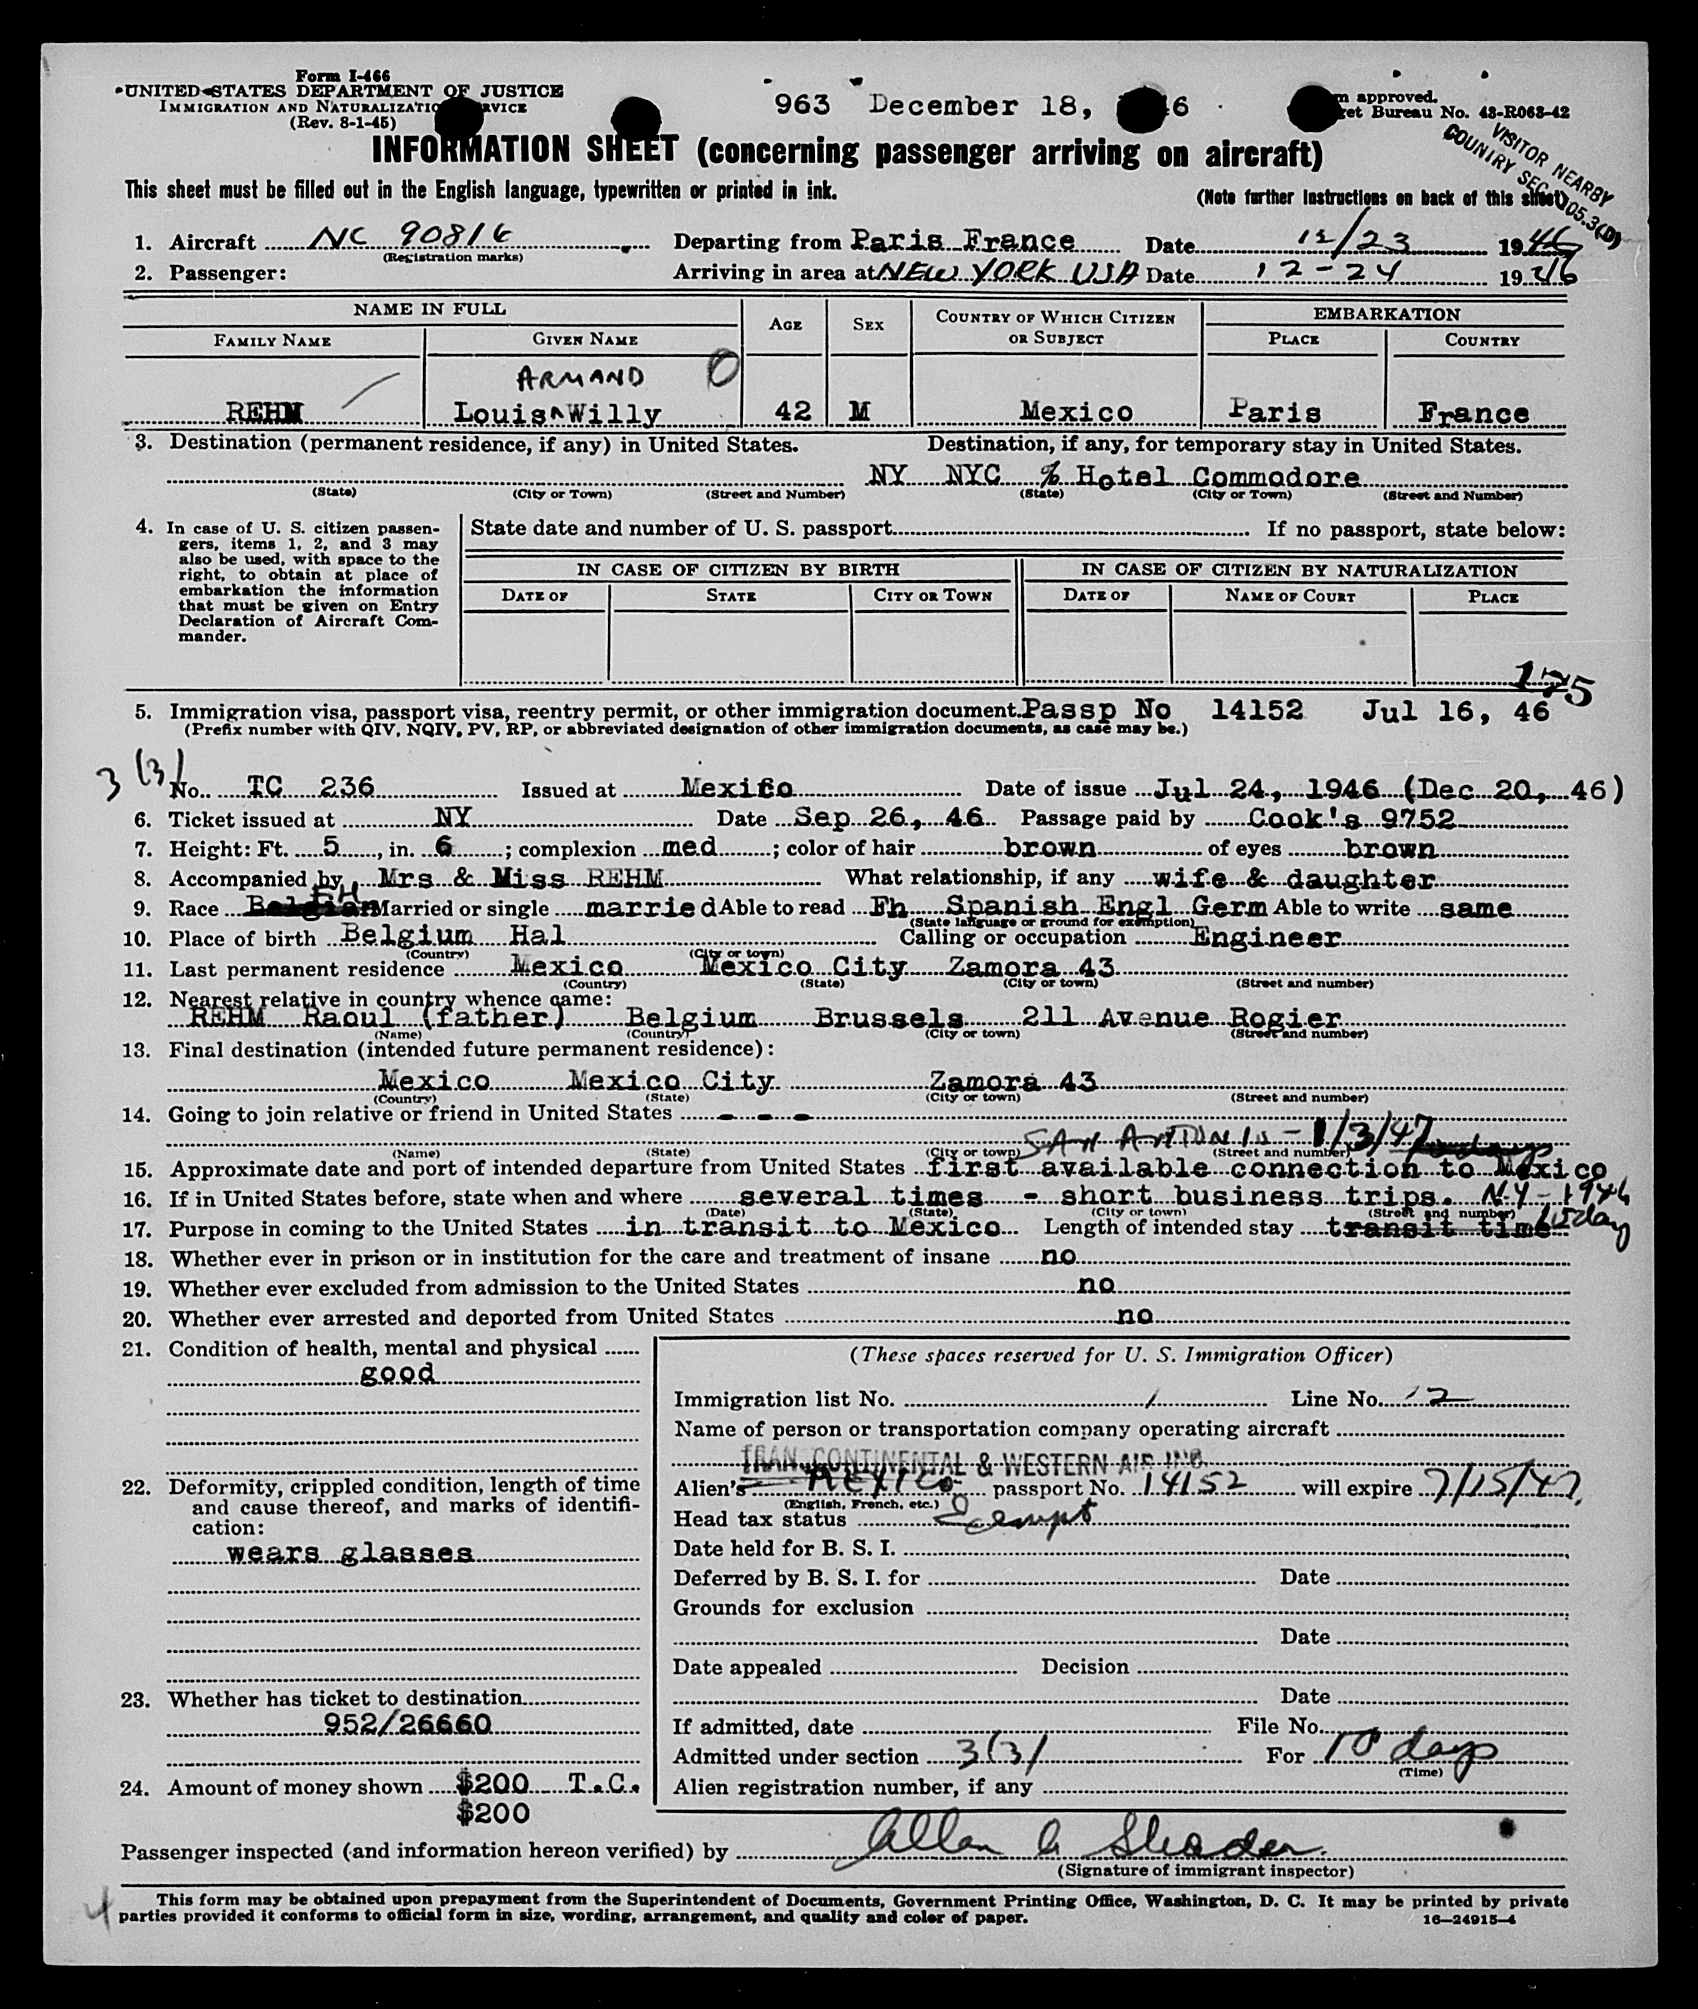 Form I-466
UNITED STATES DEPARTMENT OF JUSTICE
IMMIGRATION AND NATURALIZATION SERVICE
(Rev. 8-1-45)
963 December 18, 46
approved.
Bureau No. 43-R063-42
VISITOR NEARBY
COUNTRY SEC. 105.3(D)
INFORMATION SHEET (concerning passenger arriving on aircraft)
This sheet must be filled out in the English language, typewritten or printed in ink.
(Note further instructions on back of this sheet)
1. Aircraft NC 90816 Departing from Paris France Date 12/23 1946
(Registration marks)
2. Passenger: Arriving in area at NEW YORK USA Date 12-24 1946
NAME IN FULL AGE SEX COUNTRY OF WHICH CITIZEN OR SUBJECT EMBARKATION
FAMILY NAME GIVEN NAME PLACE COUNTRY
ARMAND 0
REHM Louis^Willy 42 M Mexico Paris France
3. Destination (permanent residence, if any) in United States. Destination, if any, for temporary stay in United States.
NY NYC % Hotel Commodore
(State) (City or Town) (Street and Number) (State) (City or Town) (Street and Number)
4. In case of U. S. citizen passengers, items 1, 2, and 3 may also be used, with space to the right, to obtain at place of embarkation the information that must be given on Entry Declaration of Aircraft Commander.
State date and number of U. S. passport If no passport, state below:
IN CASE OF CITIZEN BY BIRTH IN CASE OF CITIZEN BY NATURALIZATION
DATE OF STATE CITY OR TOWN DATE OF NAME OF COURT PLACE
175
5. Immigration visa, passport visa, reentry permit, or other immigration document. Passp No 14152 Jul 16, 46
(Prefix number with QIV, NQIV, PV, RP, or abbreviated designation of other immigration documents, as case may be.)
3(3)
No. TC 236 Issued at Mexico Date of issue Jul 24, 1946 (Dec 20, 46)
6. Ticket issued at NY Date Sep 26, 46 Passage paid by Cook's 9752
7. Height: Ft. 5, in. 6; complexion med; color of hair brown of eyes brown
8. Accompanied by Mrs & Miss REHM What relationship, if any wife & daughter
9. Race Belgian FH Married or single married Able to read Fh Spanish Engl Germ Able to write same
(State language or ground for exemption)
10. Place of birth Belgium Hal Calling or occupation Engineer
(Country) (City or town)
11. Last permanent residence Mexico Mexico City Zamora 43
(Country) (State) (City or town) (Street and number)
12. Nearest relative in country whence came:
REHM Raoul (father) Belgium Brussels 211 Avenue Rogier
(Name) (Country) (City or town) (Street and number)
13. Final destination (intended future permanent residence):
Mexico Mexico City Zamora 43
(Country) (State) (City or town) (Street and number)
14. Going to join relative or friend in United States - - -
SAN ANTONIO - 1/3/47
(Name) (State) (City or town) (Street and number)
15. Approximate date and port of intended departure from United States first available connection to Mexico
16. If in United States before, state when and where several times - short business trips. N.Y - 1946
(Date) (State) (City or town) (Street and number)
17. Purpose in coming to the United States in transit to Mexico Length of intended stay transit time 15 day
18. Whether ever in prison or in institution for the care and treatment of insane no
19. Whether ever excluded from admission to the United States no
20. Whether ever arrested and deported from United States no
21. Condition of health, mental and physical
good
22. Deformity, crippled condition, length of time and cause thereof, and marks of identification:
wears glasses
23. Whether has ticket to destination
952/26660
24. Amount of money shown $200 T.C.
$200
(These spaces reserved for U. S. Immigration Officer)
Immigration list No. 1 Line No. 12
Name of person or transportation company operating aircraft
TRANSCONTINENTAL & WESTERN AIR INC.
Alien's Mexico passport No. 14152 will expire 7/15/47.
(English, French, etc.)
Head tax status Exempt
Date held for B. S. I.
Deferred by B. S. I. for Date
Grounds for exclusion
Date
Date appealed Decision
Date
If admitted, date File No.
Admitted under section 3(3) For 10 days
(Time)
Alien registration number, if any
Passenger inspected (and information hereon verified) by
(Signature of immigrant inspector)
4
This form may be obtained upon prepayment from the Superintendent of Documents, Government Printing Office, Washington, D. C. It may be printed by private
parties provided it conforms to official form in size, wording, arrangement, and quality and color of paper.
16—24915-4